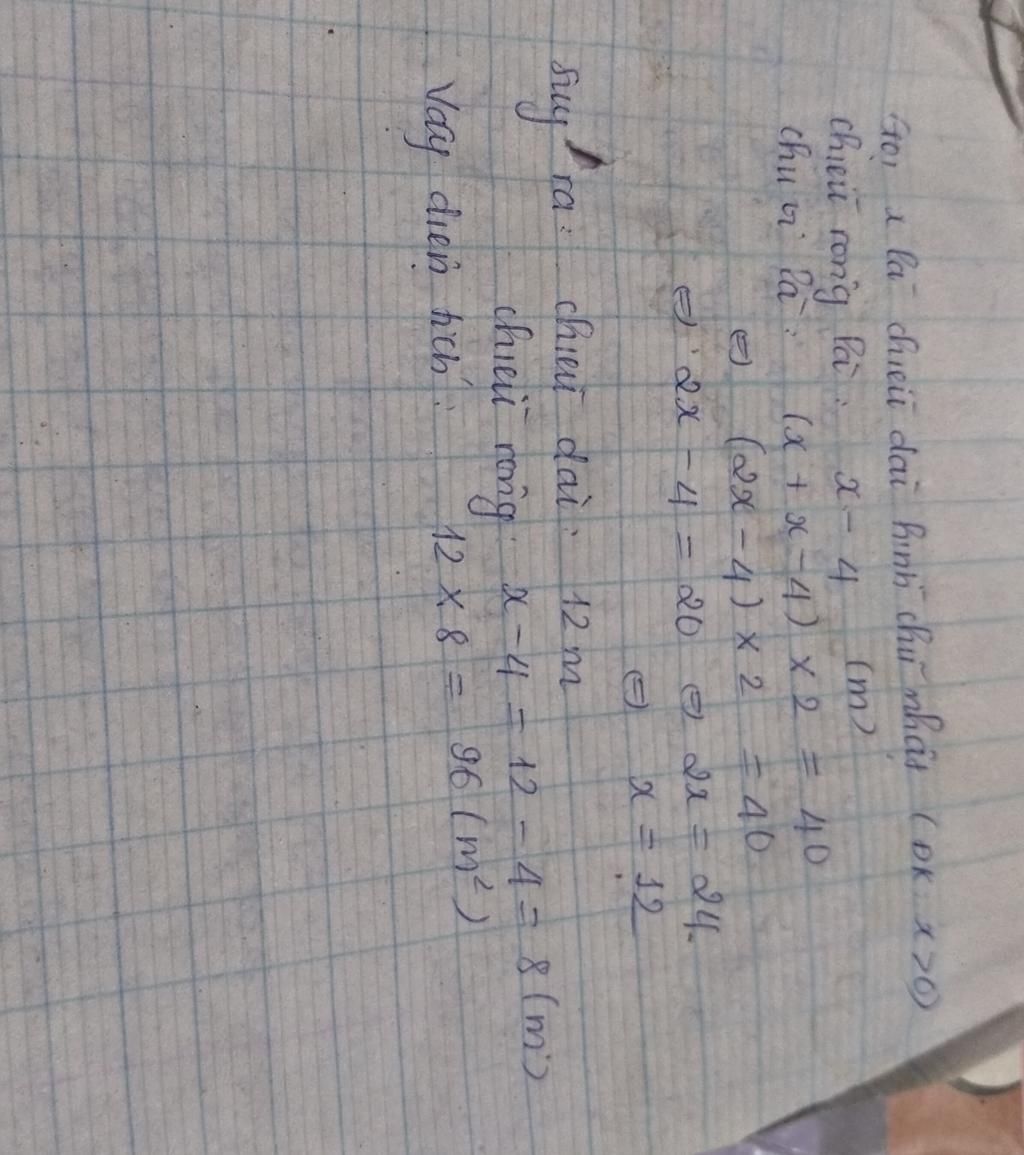 Gọi x là chiều dài hình chữ nhật (ĐK: x>0)
chiều rộng là: x - 4 (m)
chu vi là: (x + x - 4) x 2 = 40
⇔ (2x - 4) x 2 = 40
⇔ 2x - 4 = 20 ⇔ 2x = 24
⇔ x = 12
Suy ra: chiều dài: 12 m
chiều rộng: x - 4 = 12 - 4 = 8 (m)
Vậy diện tích: 12 x 8 = 96 (m²)